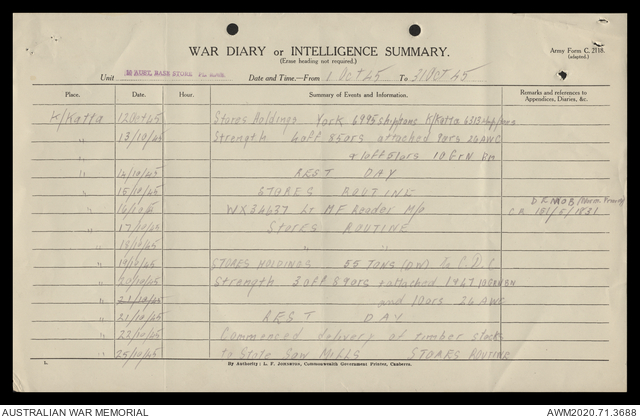 WAR DIARY or INTELLIGENCE SUMMARY.
(Erase heading not required.)
Army Form C. 2118.
(adapted.)
Unit AUST. BASE STORE
Date and Time.—From 1 Oct 45 To 31 Oct 45
Place. Date. Hour. Summary of Events and Information. Remarks and references to Appendices, Diaries, &c.
K/Katta 12 Oct 45 Stores Holdings York 6995 ship/tons K/Katta 6313 ship/tons
" 13/10/45 Strength 4 off 85 ors attached 9 ors 26 AWC
& 1 off 51 ors 10 Grn Bn
" 14/10/45 REST DAY
" 15/10/45 STORES ROUTINE
" 16/10/45 WX34637 Lt M F Reader M/O
" 17/10/45 STORES ROUTINE
" 18/10/45 " "
" 19/10/45 STORES HOLDINGS 55 Tons
" 20/10/45 Strength 3 off 89 ors + attached
" 21/10/45 and 10 ors 26 AWC
" 21/10/45 REST DAY
" 22/10/45 Commenced delivery of timber stocks
" 25/10/45 to State Saw Mills STORES ROUTINE
By Authority: L. F. Johnston, Commonwealth Government Printer, Canberra.
AUSTRALIAN WAR MEMORIAL
AWM2020.71.3688